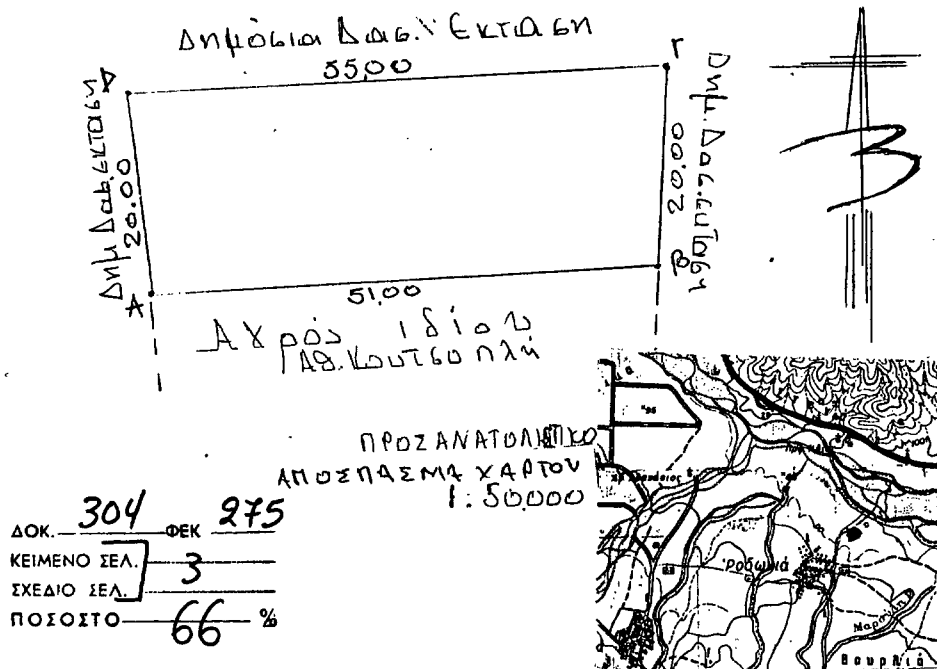 Δημόσια Δασ. Έκταση
55,00
Δ
Γ
Δημ. Δασ. εκταση
20.00
20.00
Δημ. Δασ. εκταση
Α
51,00
Β
Αγρός ιδίου
Αθ. Κουτσοπλή
3
ΠΡΟΣΑΝΑΤΟΛΙΣΤΙΚΟ
ΑΠΟΣΠΑΣΜΑ ΧΑΡΤΟΥ
1:50.000
ΔΟΚ. 304 ΦΕΚ 275
ΚΕΙΜΕΝΟ ΣΕΛ.
ΣΧΕΔΙΟ ΣΕΛ. 3
ΠΟΣΟΣΤΟ 66 %
Ροδωνιά
Βαυρλιά